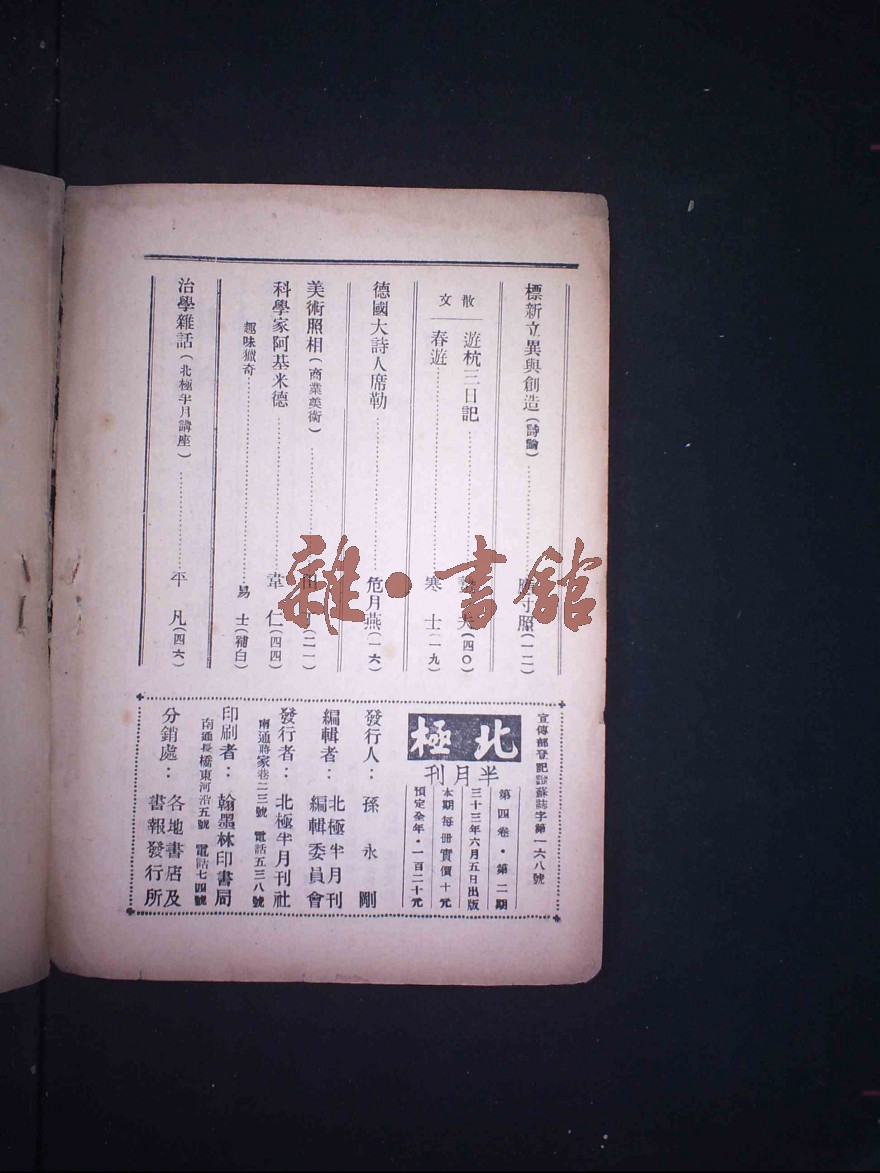 標新立異與創造(詩論)寸照(一二)
散文
遊杭三日記夫(四〇)
春遊寒士(一九)
德國大詩人席勒危月燕(一六)
美術照相(商業美術)
科學家阿基米德韋仁(四四)
趣味獵奇易士(補白)
治學雜話(北極半月講座)平凡(四六)
宣傳部登記證蘇誌字第一六八號
北極
半月刊
第四卷・第二期
三十三年六月五日出版
本期每冊實價十元
預定全年・一百二十元
發行人：孫永剛
編輯者：北極半月刊編輯委員會
發行者：北極半月刊社
南通蔣家巷二三號 電話五三八號
印刷者：翰墨林印書局
南通長橋東河沿五號 電話七四號
分銷處：各地書店及書報發行所
雜・書館